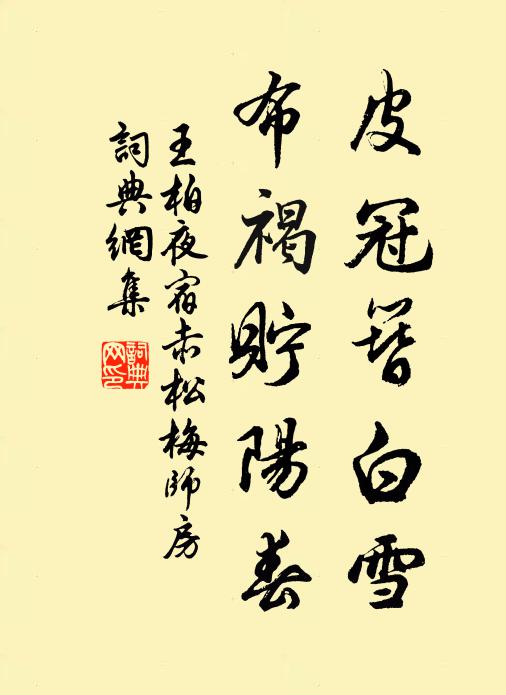 皮冠簪白雪
布褐貯陽春
王柏夜宿赤松梅師房
詞典網集
詞典網印